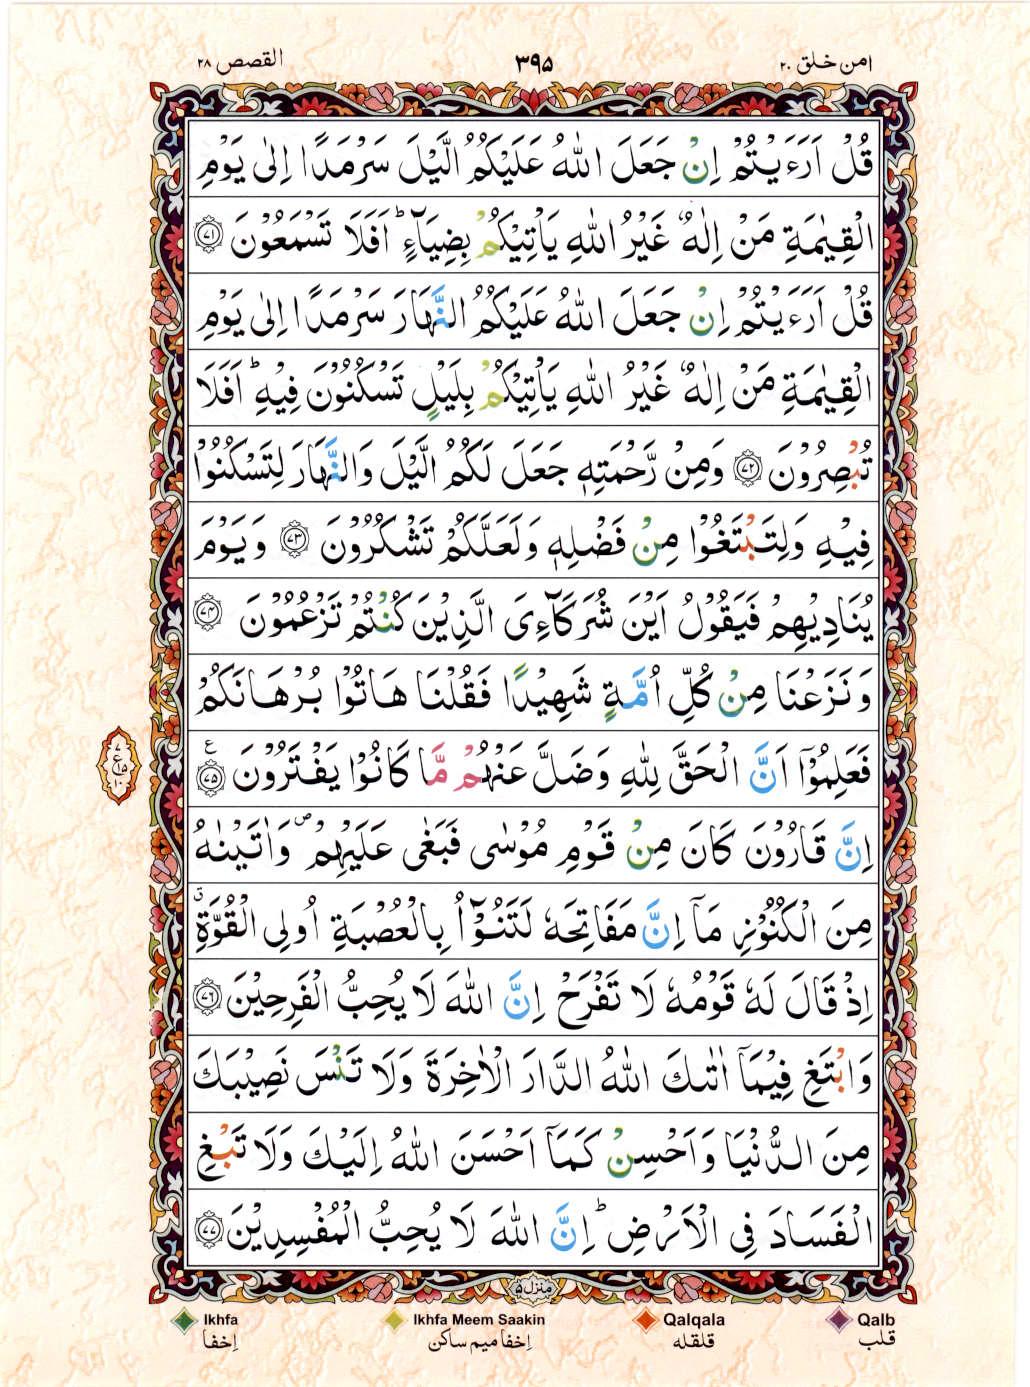 امن خلق ۲۰
۳۹۵
القصص ۲۸
قُلْ اَرَءَيْتُمْ اِنْ جَعَلَ اللّٰهُ عَلَيْكُمُ الَّيْلَ سَرْمَدًا اِلٰى يَوْمِ
الْقِيٰمَةِ مَنْ اِلٰهٌ غَيْرُ اللّٰهِ يَاْتِيْكُمْ بِضِيَآءٍ ؕ اَفَلَا تَسْمَعُوْنَ ﴿۷۱﴾
قُلْ اَرَءَيْتُمْ اِنْ جَعَلَ اللّٰهُ عَلَيْكُمُ النَّهَارَ سَرْمَدًا اِلٰى يَوْمِ
الْقِيٰمَةِ مَنْ اِلٰهٌ غَيْرُ اللّٰهِ يَاْتِيْكُمْ بِلَيْلٍ تَسْكُنُوْنَ فِيْهِ ؕ اَفَلَا
تُبْصِرُوْنَ ﴿۷۲﴾ وَمِنْ رَّحْمَتِهٖ جَعَلَ لَكُمُ الَّيْلَ وَالنَّهَارَ لِتَسْكُنُوْا
فِيْهِ وَلِتَبْتَغُوْا مِنْ فَضْلِهٖ وَلَعَلَّكُمْ تَشْكُرُوْنَ ﴿۷۳﴾ وَيَوْمَ
يُنَادِيْهِمْ فَيَقُوْلُ اَيْنَ شُرَكَآءِىَ الَّذِيْنَ كُنْتُمْ تَزْعُمُوْنَ ﴿۷۴﴾
وَنَزَعْنَا مِنْ كُلِّ اُمَّةٍ شَهِيْدًا فَقُلْنَا هَاتُوْا بُرْهَانَكُمْ
فَعَلِمُوْٓا اَنَّ الْحَقَّ لِلّٰهِ وَضَلَّ عَنْهُمْ مَّا كَانُوْا يَفْتَرُوْنَ ﴿۷۵﴾ ع
۷ ع ۱۵ ۱۰
اِنَّ قَارُوْنَ كَانَ مِنْ قَوْمِ مُوْسٰى فَبَغٰى عَلَيْهِمْ ص وَاٰتَيْنٰهُ
مِنَ الْكُنُوْزِ مَآ اِنَّ مَفَاتِحَهٗ لَتَنُوْٓاُ بِالْعُصْبَةِ اُولِى الْقُوَّةِ ق
اِذْ قَالَ لَهٗ قَوْمُهٗ لَا تَفْرَحْ اِنَّ اللّٰهَ لَا يُحِبُّ الْفَرِحِيْنَ ﴿۷۶﴾
وَابْتَغِ فِيْمَآ اٰتٰىكَ اللّٰهُ الدَّارَ الْاٰخِرَةَ وَلَا تَنْسَ نَصِيْبَكَ
مِنَ الدُّنْيَا وَاَحْسِنْ كَمَآ اَحْسَنَ اللّٰهُ اِلَيْكَ وَلَا تَبْغِ
الْفَسَادَ فِى الْاَرْضِ ؕ اِنَّ اللّٰهَ لَا يُحِبُّ الْمُفْسِدِيْنَ ﴿۷۷﴾
منزل ۵
Ikhfa
Ikhfa Meem Saakin
Qalqala
Qalb
إخفا
إخفا ميم ساكن
قلقله
قلب